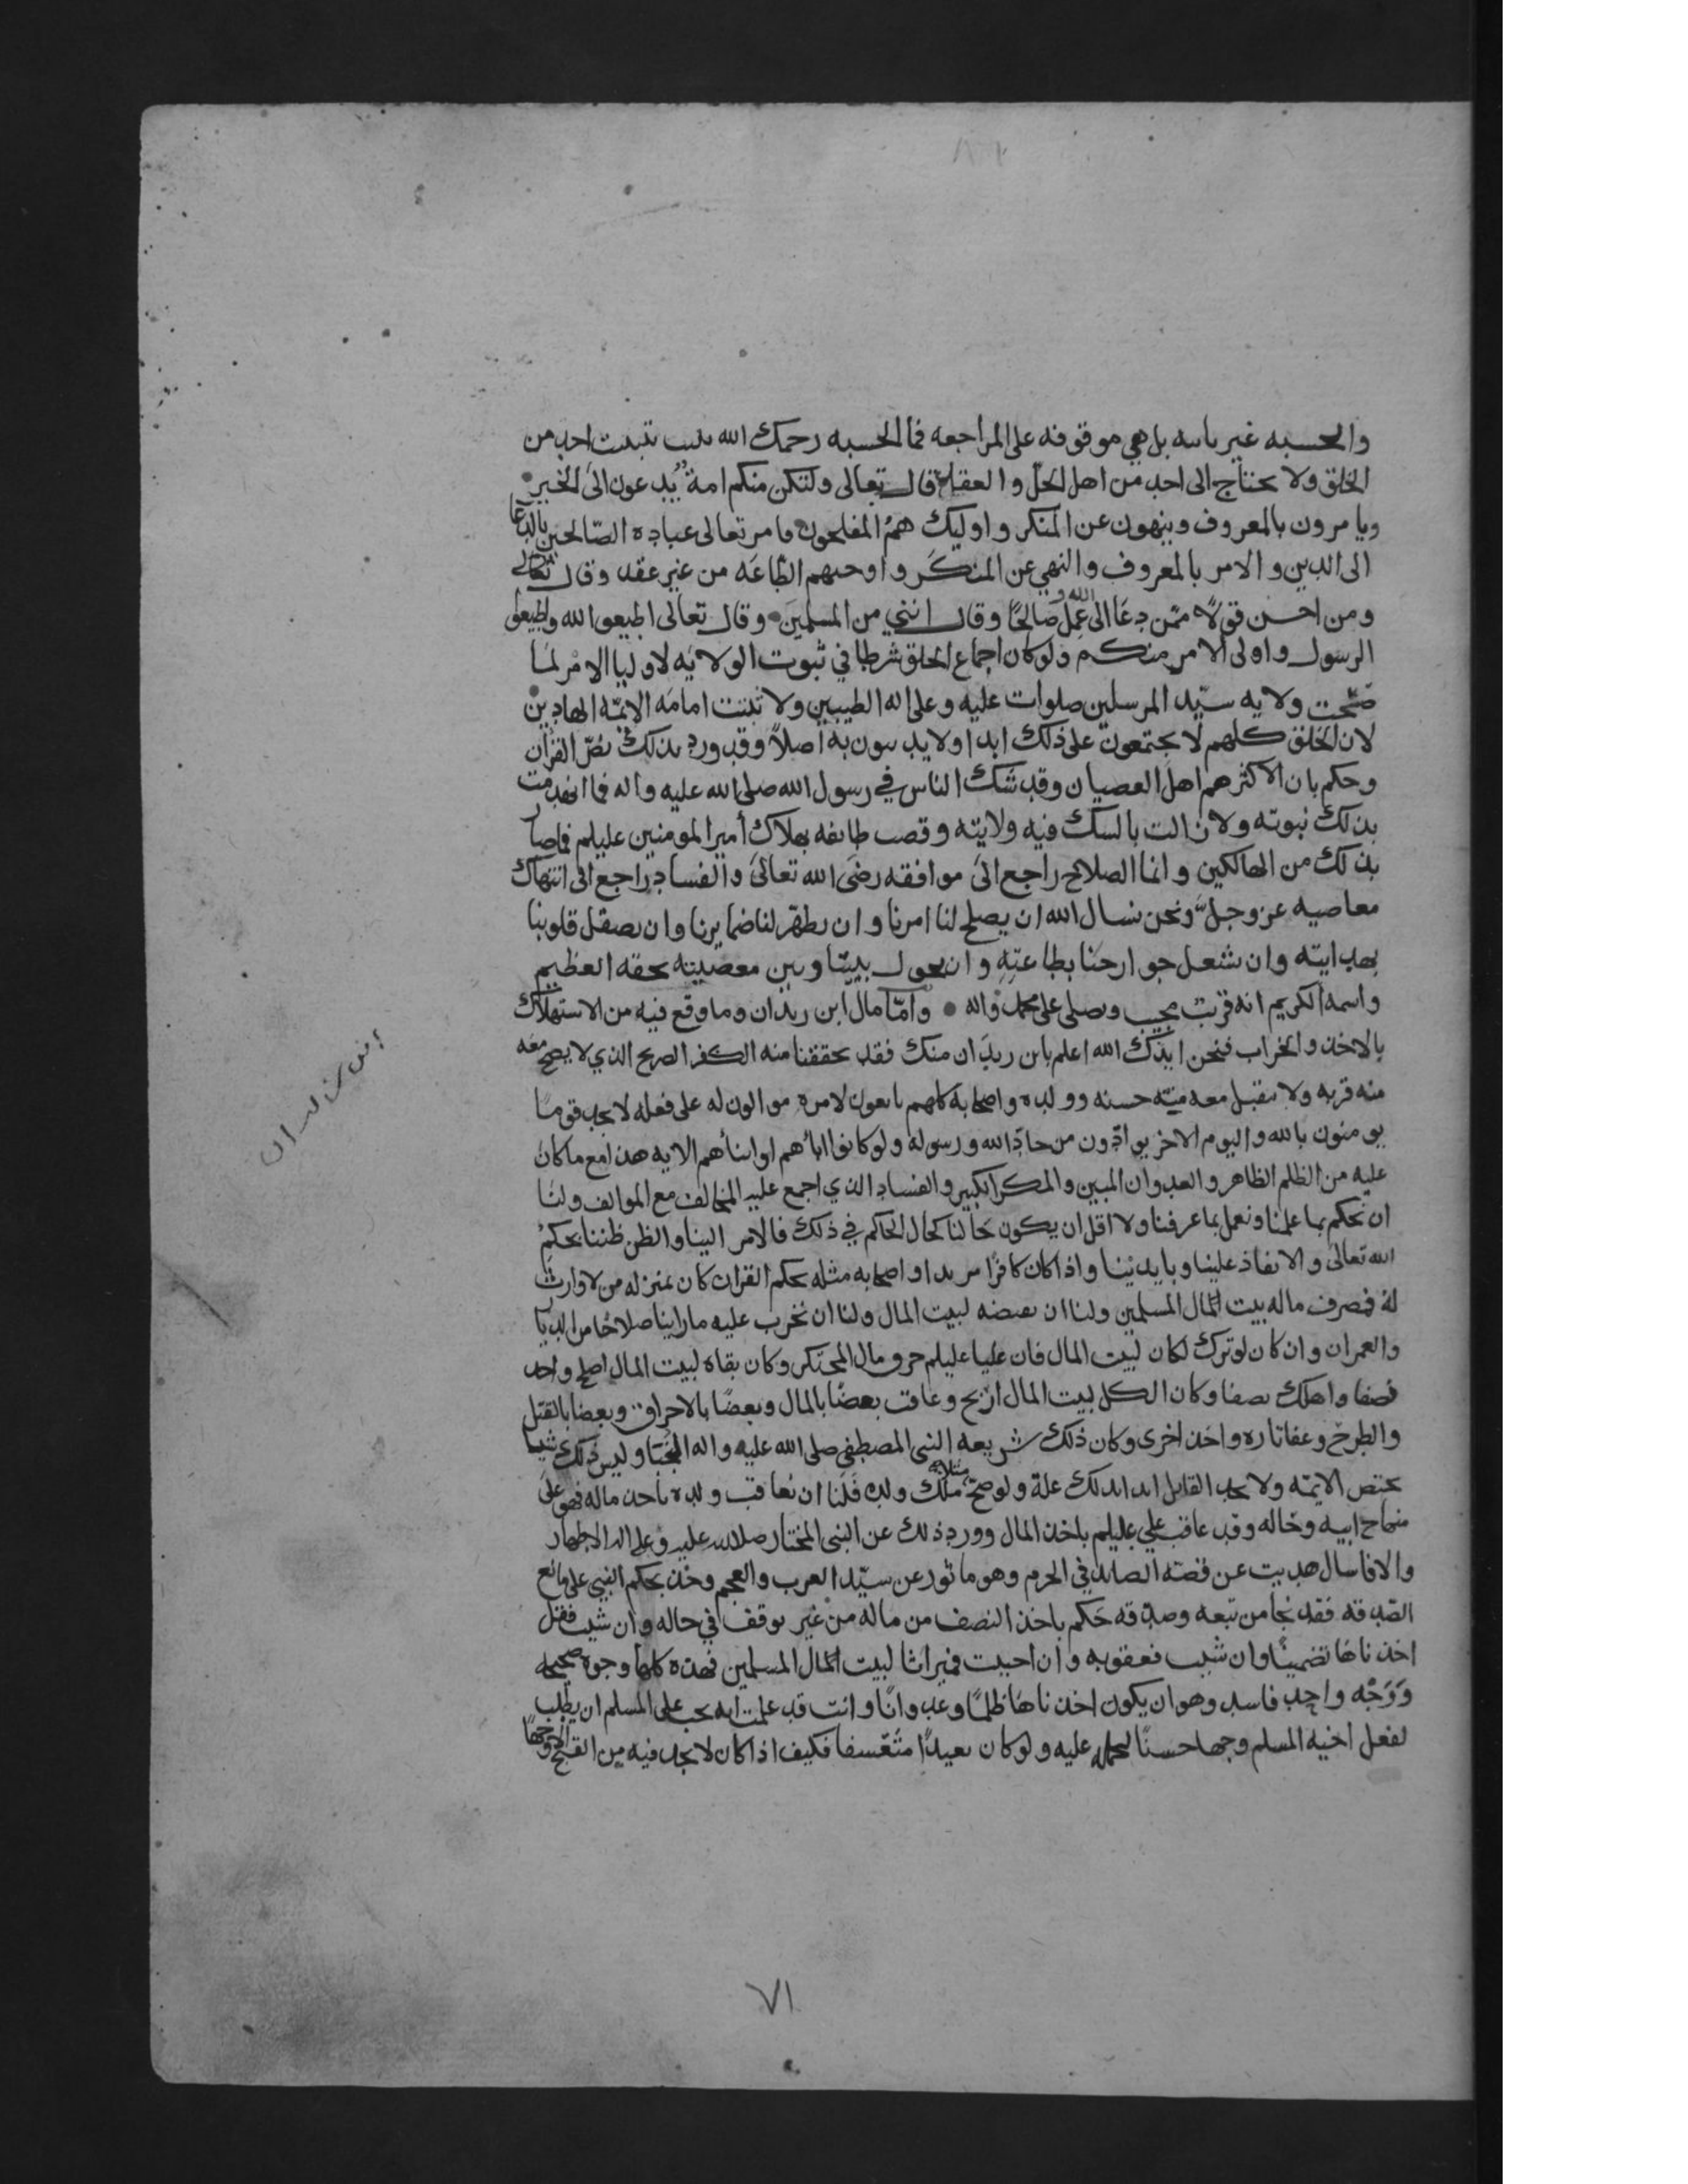 والحسبه غير باسه بل هي موقوفه على المراجعه فما الحسبه رحمك الله تثبت احد من
الخلق ولا يحتاج الى احد من اهل الحل والعقد قال تعالى ولتكن منكم امة يدعون الى الخير
ويامرون بالمعروف وينهون عن المنكر واوليك هم المفلحون فامر تعالى عباده الصالحين بالدعا
الى الدين والامر بالمعروف والنهي عن المنكر واوجب لهم الطاعه من غير عقد وقال تعالى
ومن احسن قولا ممن دعا الى الله وعمل صالحا وقال انني من المسلمين وقال تعالى اطيعوا الله واطيعوا
الرسول واولى الامر منكم ولو كان اجماع الخلق شرطا في ثبوت الولايه لاوليا الامر لما
صحت ولايه سيد المرسلين صلوات عليه وعلى اله الطيبين ولا ثبتت امامه الايمه الهادين
لان الخلق كلهم لا يجتمعون على ذلك ابدا ولا يدينون به اصلا وقد ورد بذلك نص القران
وحكم بان الاكثر هم اهل العصيان وقد شك الناس في رسول الله صلى الله عليه واله فما انهدمت
بذلك نبوته ولا زالت بالشك فيه ولايته وقصت طايفه بهلاك أمير المومنين عليلم فما صار
بذلك من الهالكين وانما الصلاح راجع الى موافقه رضى الله تعالى والفساد راجع الى انتهاك
معاصيه عز وجل ونحن نسال الله ان يصلح لنا امرنا وان يطهر لنا ضمايرنا وان يصقل قلوبنا
بهدايته وان يشعل جوارحنا بطاعته وان يحول بيننا وبين معصيته بحقه العظيم
واسمه الكريم انه قريب مجيب وصلى على محمد واله وامّا مال ابن ريدان وما وقع فيه من الاستهلاك
بالاخذ والخراب فنحن ايدك الله اعلم بابن ريدان منك فقد تحققنا منه الكفر الصريح الذي لا يصح معه
منه قربه ولا تقبل معه منه حسنه وولده واصحابه كلهم تابعون لامره موالون له على فعله لا تجد قوما
يومنون بالله واليوم الاخر يوادون من حاد الله ورسوله ولو كانوا اباهم او ابناهم الايه هذا مع ما كان
عليه من الظلم الظاهر والعدوان المبين والمكر الكبير والفساد الذي اجمع عليه المخالف مع الموالف ولنا
ان نحكم بما علمنا ونعمل بما عرفنا ولا اقل ان يكون حالنا كحال الحاكم في ذلك فالامر الينا والظن ظننا بحكم
الله تعالى والانفاذ علينا وبايدينا واذا كان كافرا مرتدا واصحابه مثله بحكم القران كان بمنزله من لا وارث
له فمصرف ماله بيت المال المسلمين ولنا ان نقبضه لبيت المال ولنا ان نخرب عليه ما راينا صلاحا من
والعمران وان كان لو ترك لكان لبيت المال فان عليا عليلم حرق مال المحتكر وكان بقاه لبيت المال اصلح واخذ
نصفا واهلك نصفا وكان الكل لبيت المال اربح وعاقب بعضا بالمال وبعضا بالاحراق وبعضا بالقتل
والطرح وعفا تاره واخذ اخرى وكان ذلك شريعه النبي المصطفى صلى الله عليه واله المجتبا وليس ذلك شيا
يختص الايمه ولا يجد القايل ابدا لذلك علة ولو صح ملك ولده فلنا ان نعاقب ولده باخذ ماله فهو على
منهاج ابيه وخاله وقد عاقب علي عليلم باخذ المال وورد ذلك عن النبى المختار صلى الله عليه وعلى اله الاطهار
والا فاسال هديت عن قصه الصايد في الحرم وهو ماثور عن سيد العرب والعجم وخذ بحكم النبي على مانع
الصدقه فقد نجا من تبعه وصدقه حكم باخذ النصف من ماله من غير توقف في حاله وان شيت فقل
اخذناها تضمينا وان شيت فعقوبه وان احببت فميراثا لبيت المال المسلمين فهذه كلها وجوه صحيحه
ووجه واحد فاسد وهو ان يكون اخذناها ظلما وعدوانا وانت قد علمت انه يجب على المسلم ان يطلب
لفعل اخيه المسلم وجها حسنا ليحمله عليه ولو كان بعيدا متعسفا فكيف اذا كان لا يجد فيه من القبح الا وجها
٧١